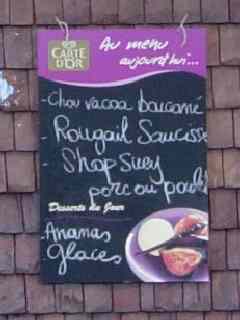 CARTE
D'OR
Au menu
aujourd'hui...
- Chou vacoa boucané
Rougail Saucisse
- Shop Suey
porc ou poulet
Desserts du Jour
- Ananas
Glaces